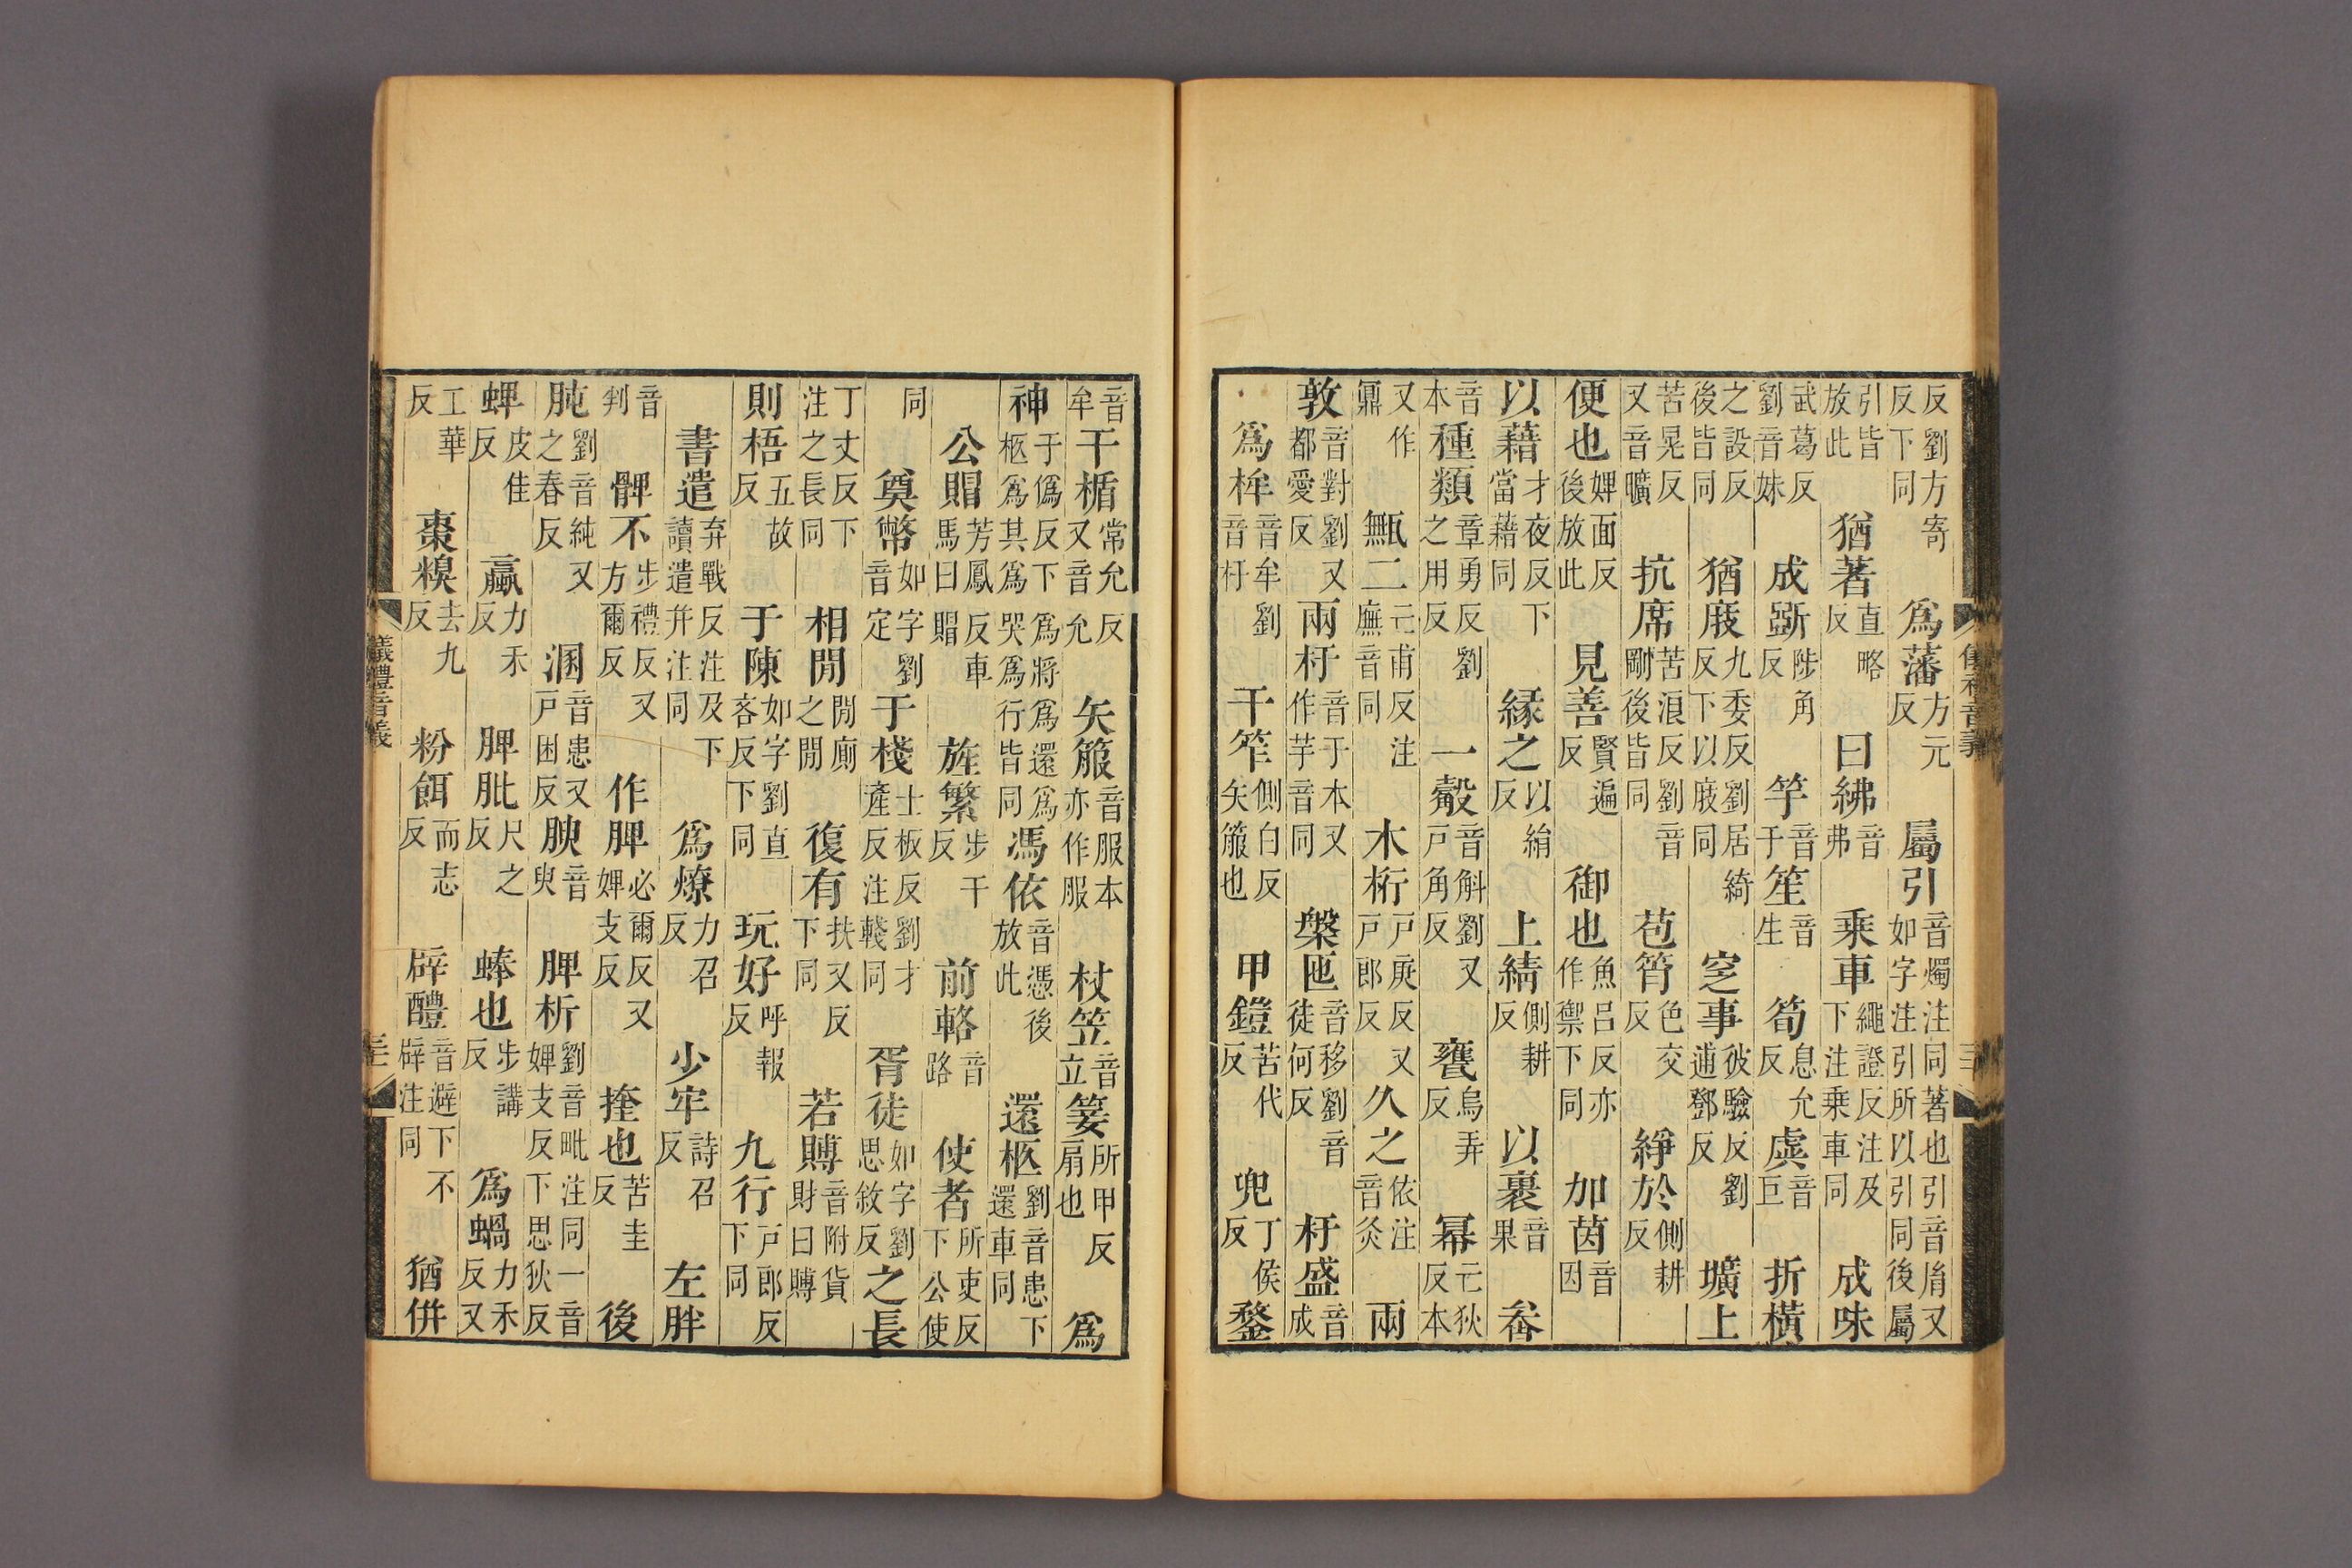 反劉方寄反下同爲藩方元反屬引音燭注同著也引音胤又如字注引所以引同後屬
引皆放此猶著直略反曰紼音弗乘車繩證反注及下注乘車同成味
武葛反劉音妹成斲陟角反竽音于笙音生筍息允反虡音巨折橫
之設反後皆同猶庪九委反劉居綺反下以庪同窆事彼驗反劉逋鄧反壙上
苦晃反又音曠抗席苦浪反劉音剛後皆同苞筲色交反䋫於側耕反
便也婢面反後放此見善賢遍反御也魚呂反亦作禦下同加茵音因
以藉才夜反下當藉同緣之以絹反上綪側耕反以裹音果畚
音本種類章勇反劉之用反一觳音斛劉又戶角反甕烏弄反冪亡狄反本
又作鼏甒二亡甫反注廡音同木桁戶庚反又戶郎反久之依注音灸兩
敦音對劉又都愛反兩杅音于本又作芋音同槃匜音移劉音徒何反杅盛音成
爲桙音牟劉音杅干笮側白反矢箙也甲鎧苦代反兜丁侯反鍪
音牟干楯常允反又音允矢箙音服本亦作服杖笠音立所甲反扇也爲
神于僞反下爲將爲還爲柩爲其爲哭爲行皆同馮依音憑後放此還柩劉音患下還車同
公賵芳鳳反車馬曰賵旌繁步干反前輅音路使者所吏反下公使
同奠幣如字劉音定于棧士板反劉才產反注輚同胥徒如字劉思敘反之長
丁丈反下注之長同相閒閒廁之閒復有扶又反下同若賻音附貨財曰賻
則梧五故反于陳如字劉直吝反下同玩好呼報反九行戶郎反下同
書遣弃戰反注及下讀遣并注同爲燎力召反少牢詩召反左胖
音判髀不步禮反又方爾反作脾必爾反又婢支反也苦圭反後
肫劉音純又之春反溷音患又戶困反腴音臾脾析劉音毗注同一音婢支反下思狄反
蜱皮佳反蠃力禾反脾肶尺之反蜯也步講反爲蝸力禾反又
工華反棗糗去九反粉餌而志反辟醴音避下不辟注同猶併
儀禮音義